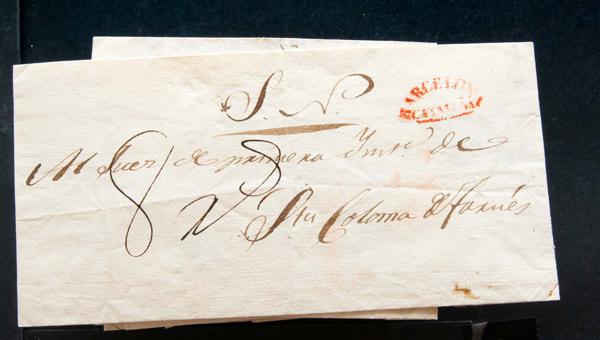 S. N.
BARCELONA
CATALUÑA
Al Juez de primera Inst.ª de
Sta Coloma de Farnés